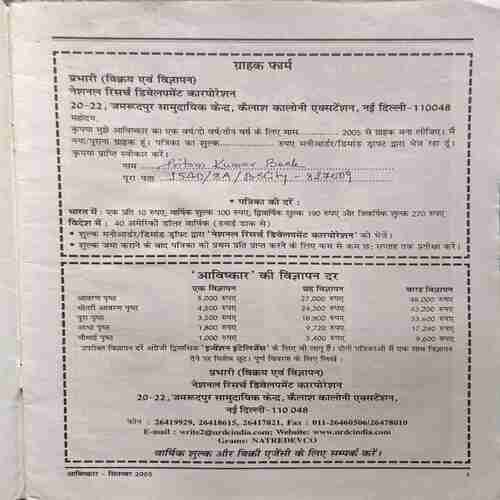 ग्राहक फार्म
प्रभारी (विक्रय एवं विज्ञापन)
नेशनल रिसर्च डिवेलपमेंट कारपोरेशन
20-22, जमरूदपुर सामुदायिक केन्द्र, कैलाश कालोनी एक्सटेंशन, नई दिल्ली-110048
महोदय,
कृपया मुझे आविष्कार का एक वर्ष/दो वर्ष/तीन वर्ष के लिए मास ............... 2005 से ग्राहक बना लीजिए। मैं
नया/पुराना ग्राहक हूं। पत्रिका का शुल्क............... रुपए मनीआर्डर/डिमांड ड्राफ्ट द्वारा भेज रहा हूं।
कृपया प्राप्ति स्वीकार करें।
नाम Pritam Kumar
पूरा पता
* पत्रिका की दरें :
भारत में : एक प्रति 10 रुपए, वार्षिक शुल्क 100 रुपए, द्विवार्षिक शुल्क 190 रुपए और त्रिवार्षिक शुल्क 270 रुपए
विदेश में : 40 अमेरिकी डॉलर वार्षिक (हवाई डाक से)
* शुल्क मनीआर्डर/डिमांड ड्राफ्ट द्वारा 'नेशनल रिसर्च डिवेलपमेंट कारपोरेशन' को भेजें।
* शुल्क जमा कराने के बाद पत्रिका की प्रथम प्रति प्राप्त करने के लिए कम से कम छः सप्ताह तक प्रतीक्षा करें।
'आविष्कार' की विज्ञापन दर
एक विज्ञापन छह विज्ञापन बारह विज्ञापन
आवरण पृष्ठ 5,000 रुपए 27,000 रुपए 48,000 रुपए
भीतरी आवरण पृष्ठ 4,500 रुपए 24,300 रुपए 43,200 रुपए
पूरा पृष्ठ 3,500 रुपए 18,900 रुपए 33,600 रुपए
आधा पृष्ठ 1,800 रुपए 9,720 रुपए 17,280 रुपए
चौथाई पृष्ठ 1,000 रुपए 5,400 रुपए 9,600 रुपए
उपरोक्त विज्ञापन दरें अंग्रेजी द्विमासिक 'इन्वेंशन इंटेलिजेंस' के लिए भी लागू हैं। दोनों पत्रिकाओं में एक साथ विज्ञापन
देने पर विशेष छूट। पूर्ण विवरण के लिए लिखें :
प्रभारी (विक्रय एवं विज्ञापन)
नेशनल रिसर्च डिवेलपमेंट कारपोरेशन
20-22, जमरूदपुर सामुदायिक केन्द्र, कैलाश कालोनी एक्सटेंशन,
नई दिल्ली-110 048
फोन : 26419929, 26418615, 26417821, Fax : 011-26460506/26478010
E-mail : write2@nrdcindia.com; Website: www.nrdcindia.com
Grams: NATREDEVCO
वार्षिक शुल्क और बिक्री एजेंसी के लिए सम्पर्क करें।
आविष्कार - सितम्बर 2005